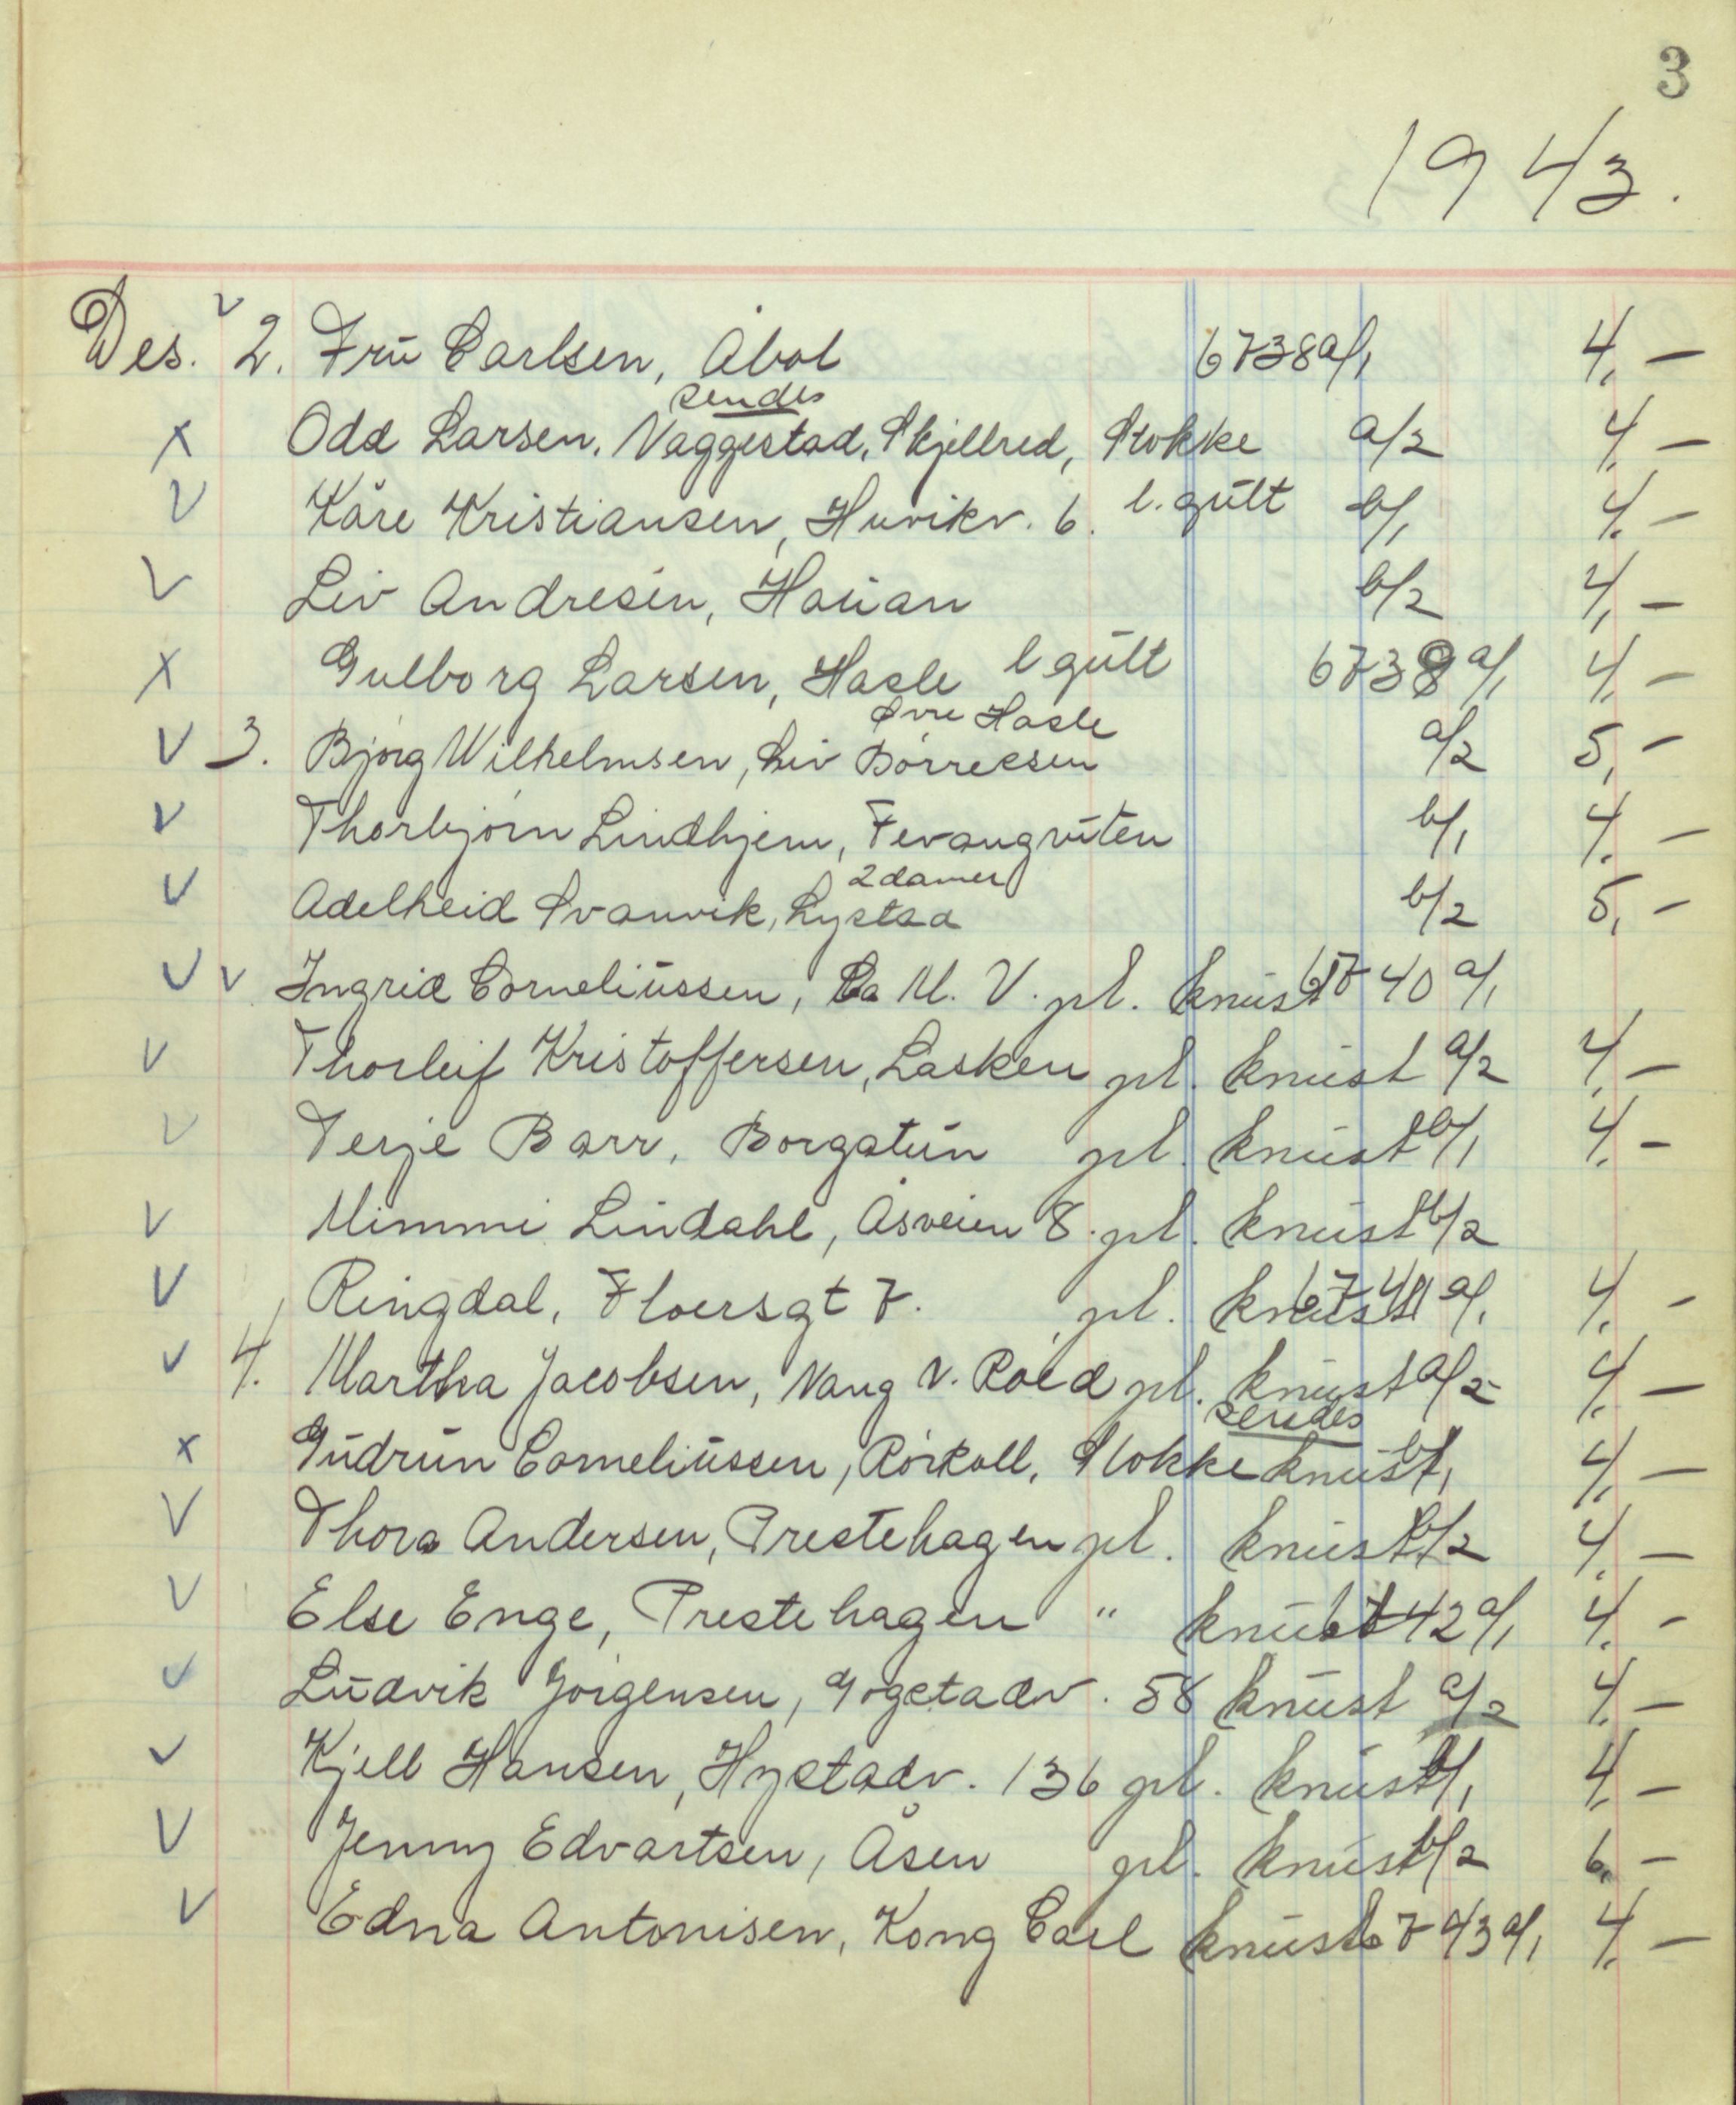 3
1943.
Des. v 2. Frū Carlsen, Åbol 6738 a/1 4,-
sendes
x Odd Larsen, Vaggestad, Skjellred, Stokke a/2 4,-
v Kåre Kristiansen, Huvikv. 6. l. gūlt b/1 4,-
v Liv Andresen, Haūan b/2 4,-
x Gulborg Larsen, Hasle l gūlt 6739 a/1 4,-
Øvre Hasle
v 3. Bjørg Wilhelmsen, Liv Børresen a/2 5,-
v Thorbjørn Lindhjem, Fevangrūten b/1 4,-
2 damer
v Adelheid Svanvik, Lystad b/2 5,-
v v Ingrid Corneliūssen, Ca M. V. pl. knūst 6740 a/1
v Thorleif Kristoffersen, Lasken pl. knūst a/2 4,-
v Terje Barr, Borgatūn pl. knūst b/1 4,-
v Mimmi Lindahl, Åsveien 8. pl. knūst b/2
v Ringdal, Floersgt 7. pl. knūst 6741 a/1 4,-
v 4. Martha Jacobsen, Vang v. Raed pl. knūst a/2 4,-
sendes
x Gūdrūn Corneliūssen, Rørkoll, Stokke knūst b/1 4,-
v Thora Andersen, Prestehagen pl. knūst b/2 4,-
v Else Enge, Prestehagen " knūst 6742 a/1 4,-
v Lūdvik Jørgensen, Gogstadv. 58 knūst a/2 4,-
v Kjell Hansen, Hystadv. 136 pl. knūst b/1 4,-
v Jenny Edvartsen, Åsen pl. knūst b/2 6,-
v Edna Antonisen, Kong Carl knūst 6743 a/1 4,-